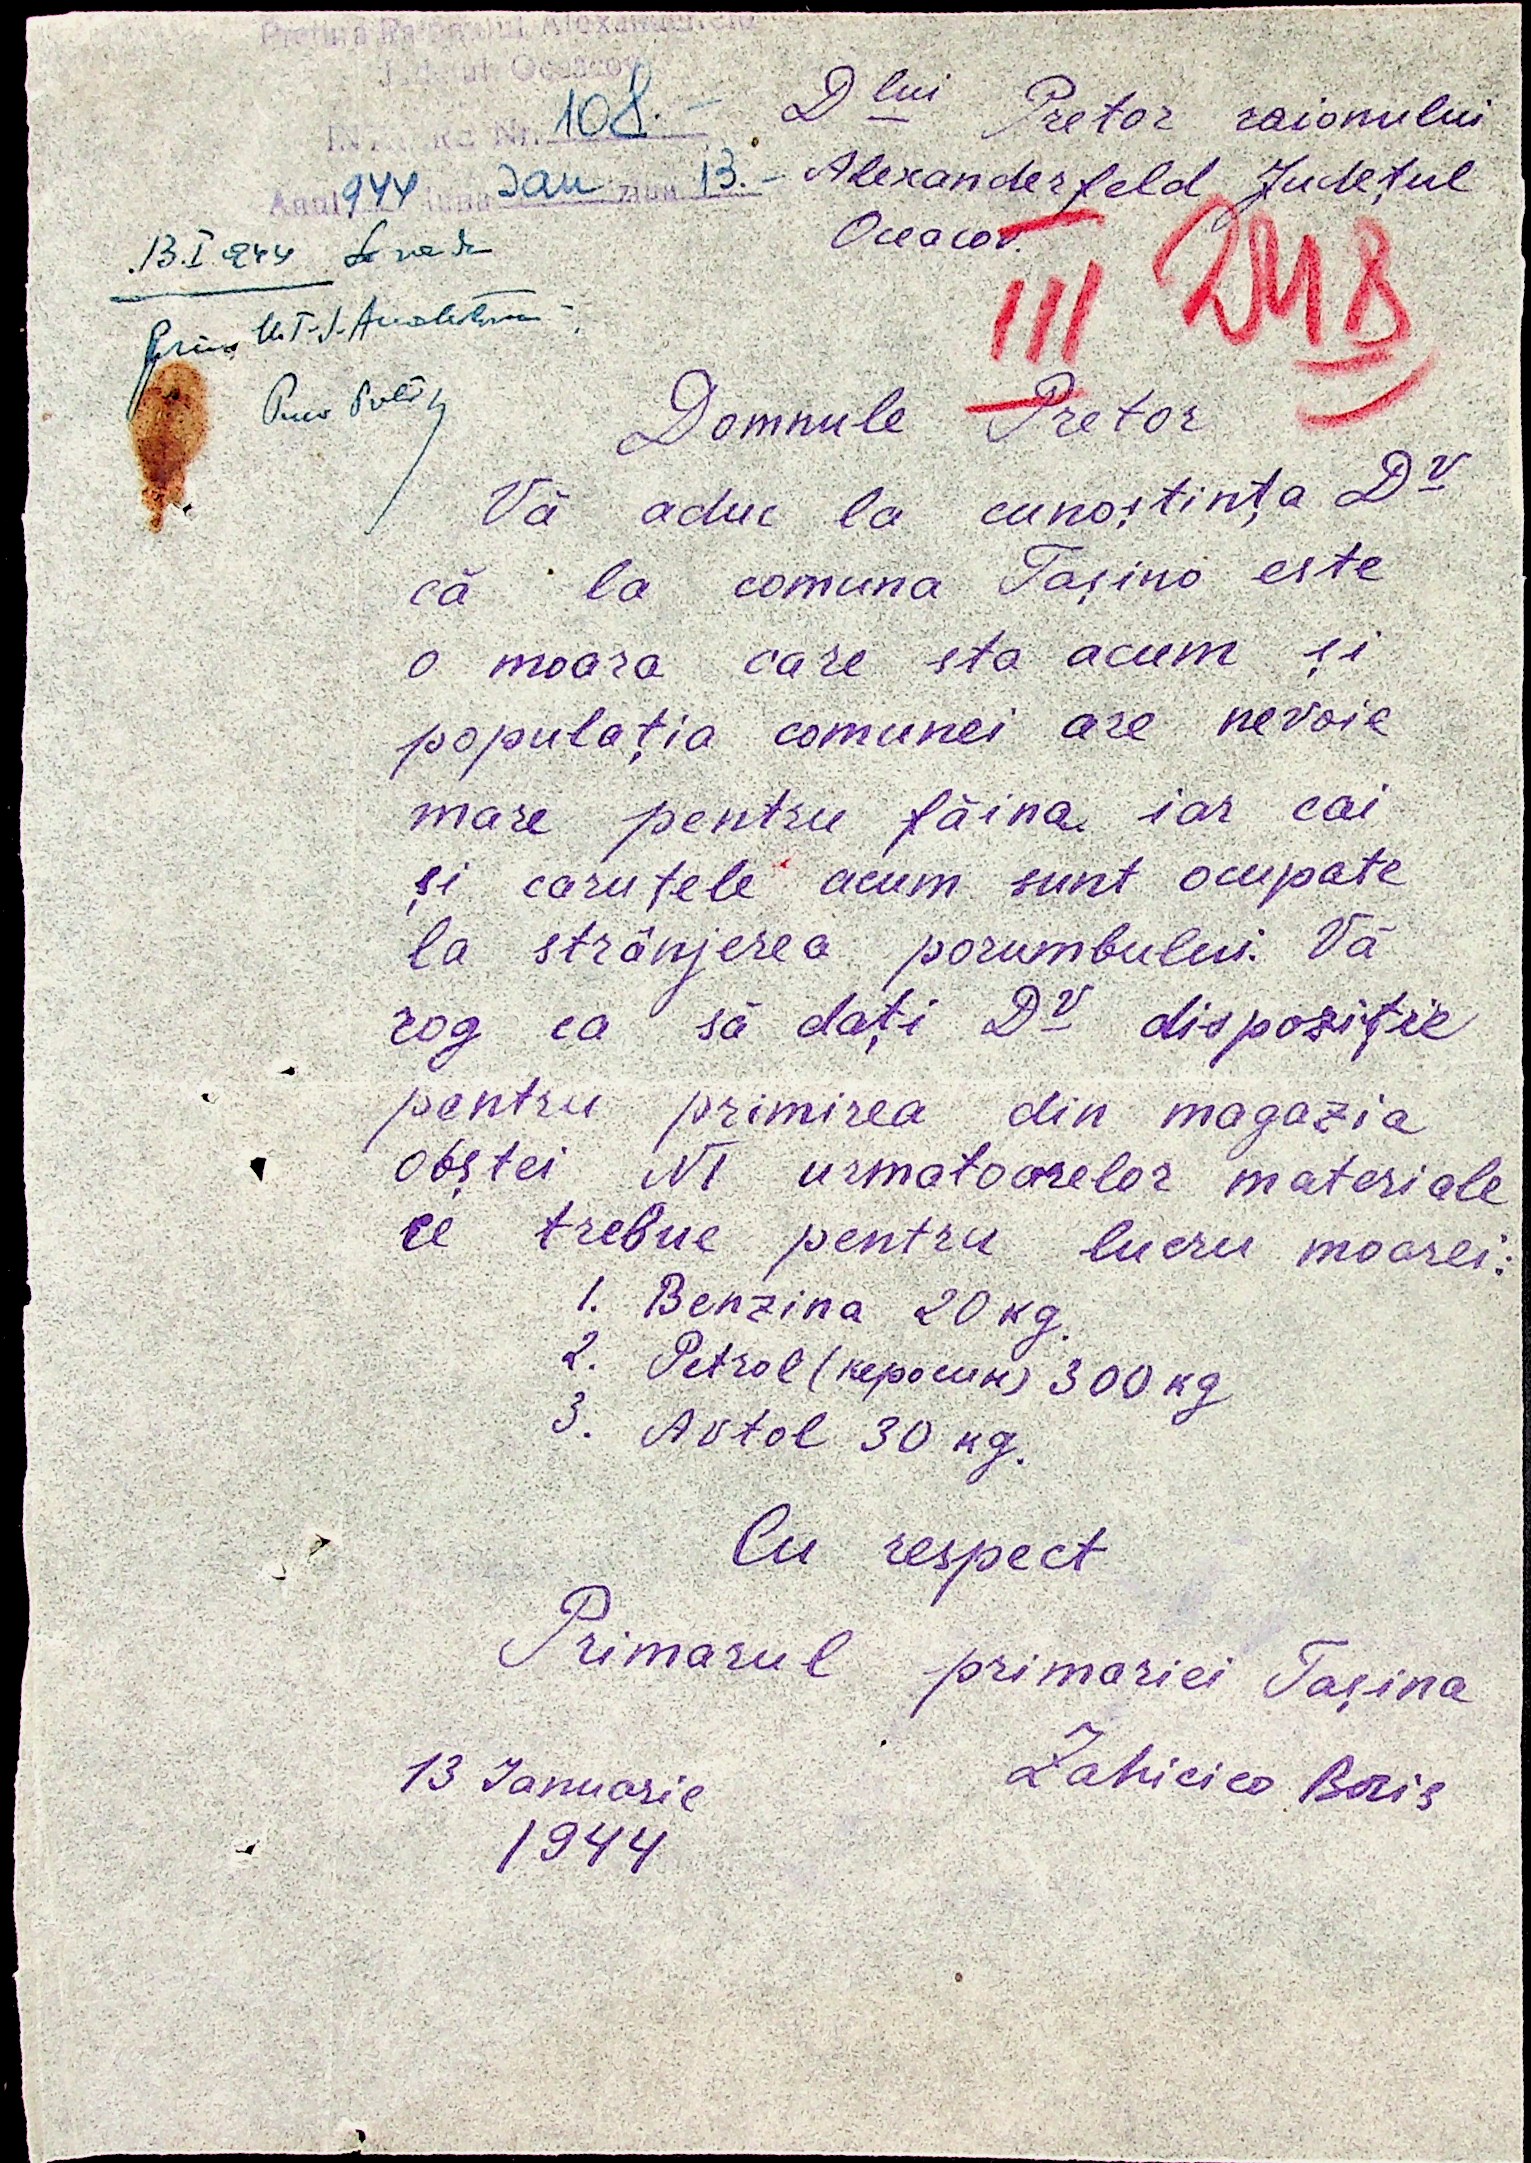 Pretura Raionului Alexanderfeld
Județul Oceacov
Nr. 108.-
Anul 944 luna Ian ziua 13.-
D lui Pretor raionului
Alexanderfeld Județul
Oceacov.
III 24 B
13.I.944
Domnule Pretor
Vă aduc la cunoștința D v
că la comuna Tașino este
o moara care sta acum și
populația comunei are nevoie
mare pentru făina iar cai
și caruțele acum sunt ocupate
la strânjerea porumbului. Vă
rog ca să dați D v dispoziție
pentru primirea din magazia
obștei N1 urmatoarelor materiale
ce trebue pentru lucru moarei:
1. Benzina 20 кg.
2. Petrol (керосин) 300 кg
3. Avtol 30 кg.
Cu respect
Primarul primariei Tașina
13 Ianuarie
1944
Boris